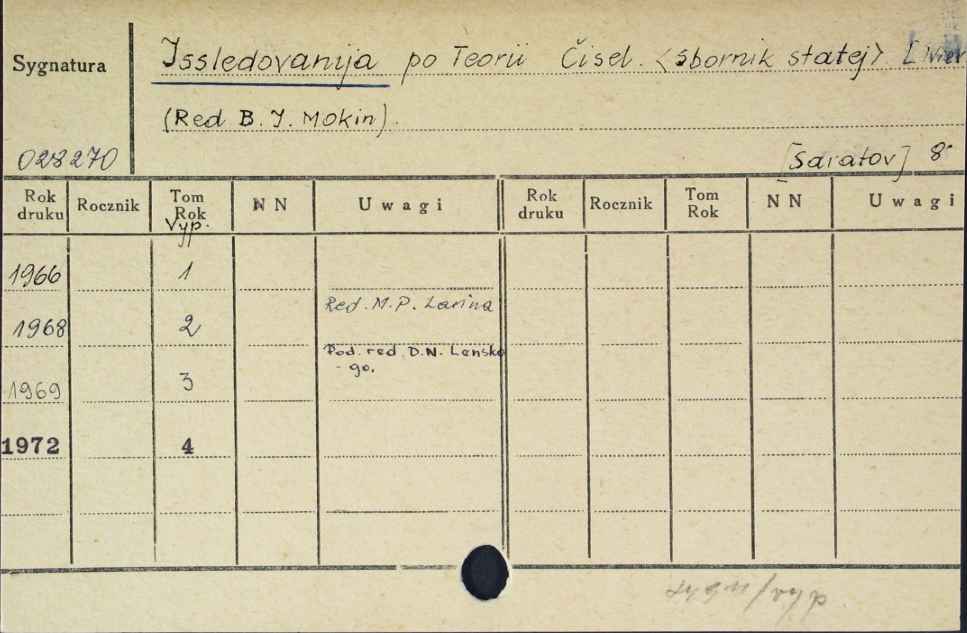 Sygnatura Issledovanija po Teorii Čisel. <Sbornik statej> [
(Red B. I. Mokin).
028270 [Saratov] 8°
Rok druku Rocznik Tom Rok Vyp. NN Uwagi Rok druku Rocznik Tom Rok NN Uwagi
1966 1
Red. M. P. Larina
1968 2
Pod. red. D.N. Lensko
- go.
1969 3
1972 4